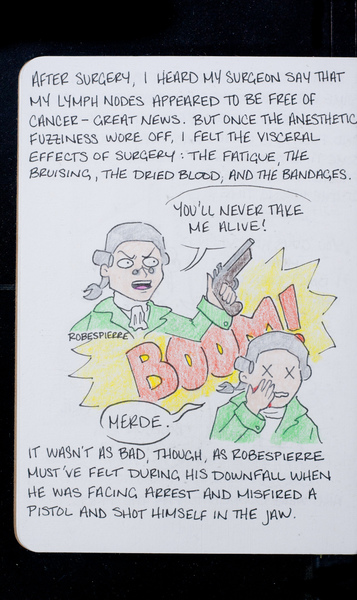 AFTER SURGERY, I HEARD MY SURGEON SAY THAT
MY LYMPH NODES APPEARED TO BE FREE OF
CANCER – GREAT NEWS. BUT ONCE THE ANESTHETIC
FUZZINESS WORE OFF, I FELT THE VISCERAL
EFFECTS OF SURGERY: THE FATIGUE, THE
BRUISING, THE DRIED BLOOD, AND THE BANDAGES.
YOU'LL NEVER TAKE
ME ALIVE!
ROBESPIERRE
BOOM!
MERDE.
IT WASN'T AS BAD, THOUGH, AS ROBESPIERRE
MUST'VE FELT DURING HIS DOWNFALL WHEN
HE WAS FACING ARREST AND MISFIRED A
PISTOL AND SHOT HIMSELF IN THE JAW.